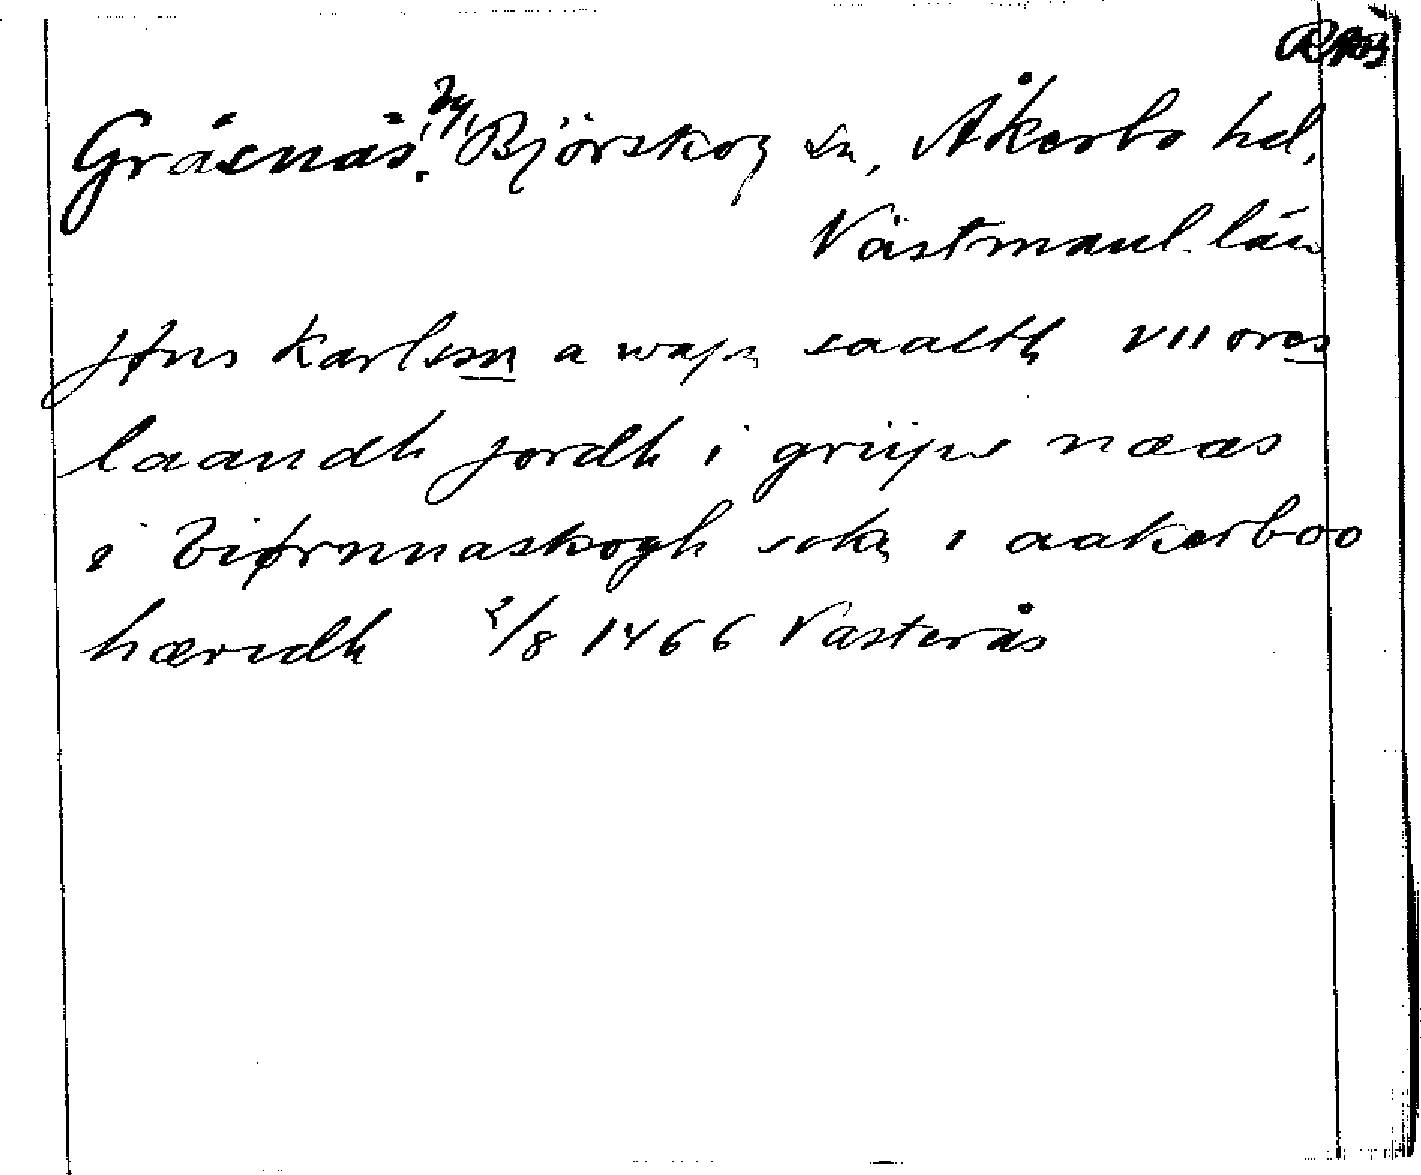 Gråsnäs, by, Björskog sn, Åkerbo hd,
Västmanl. län
Jøns Karlsson a wapn saalth VII øres
laandh jordh i griijps næas
i biørnnaskogh sokn i aakerboo
hæridh 2/8 1466 Västerås